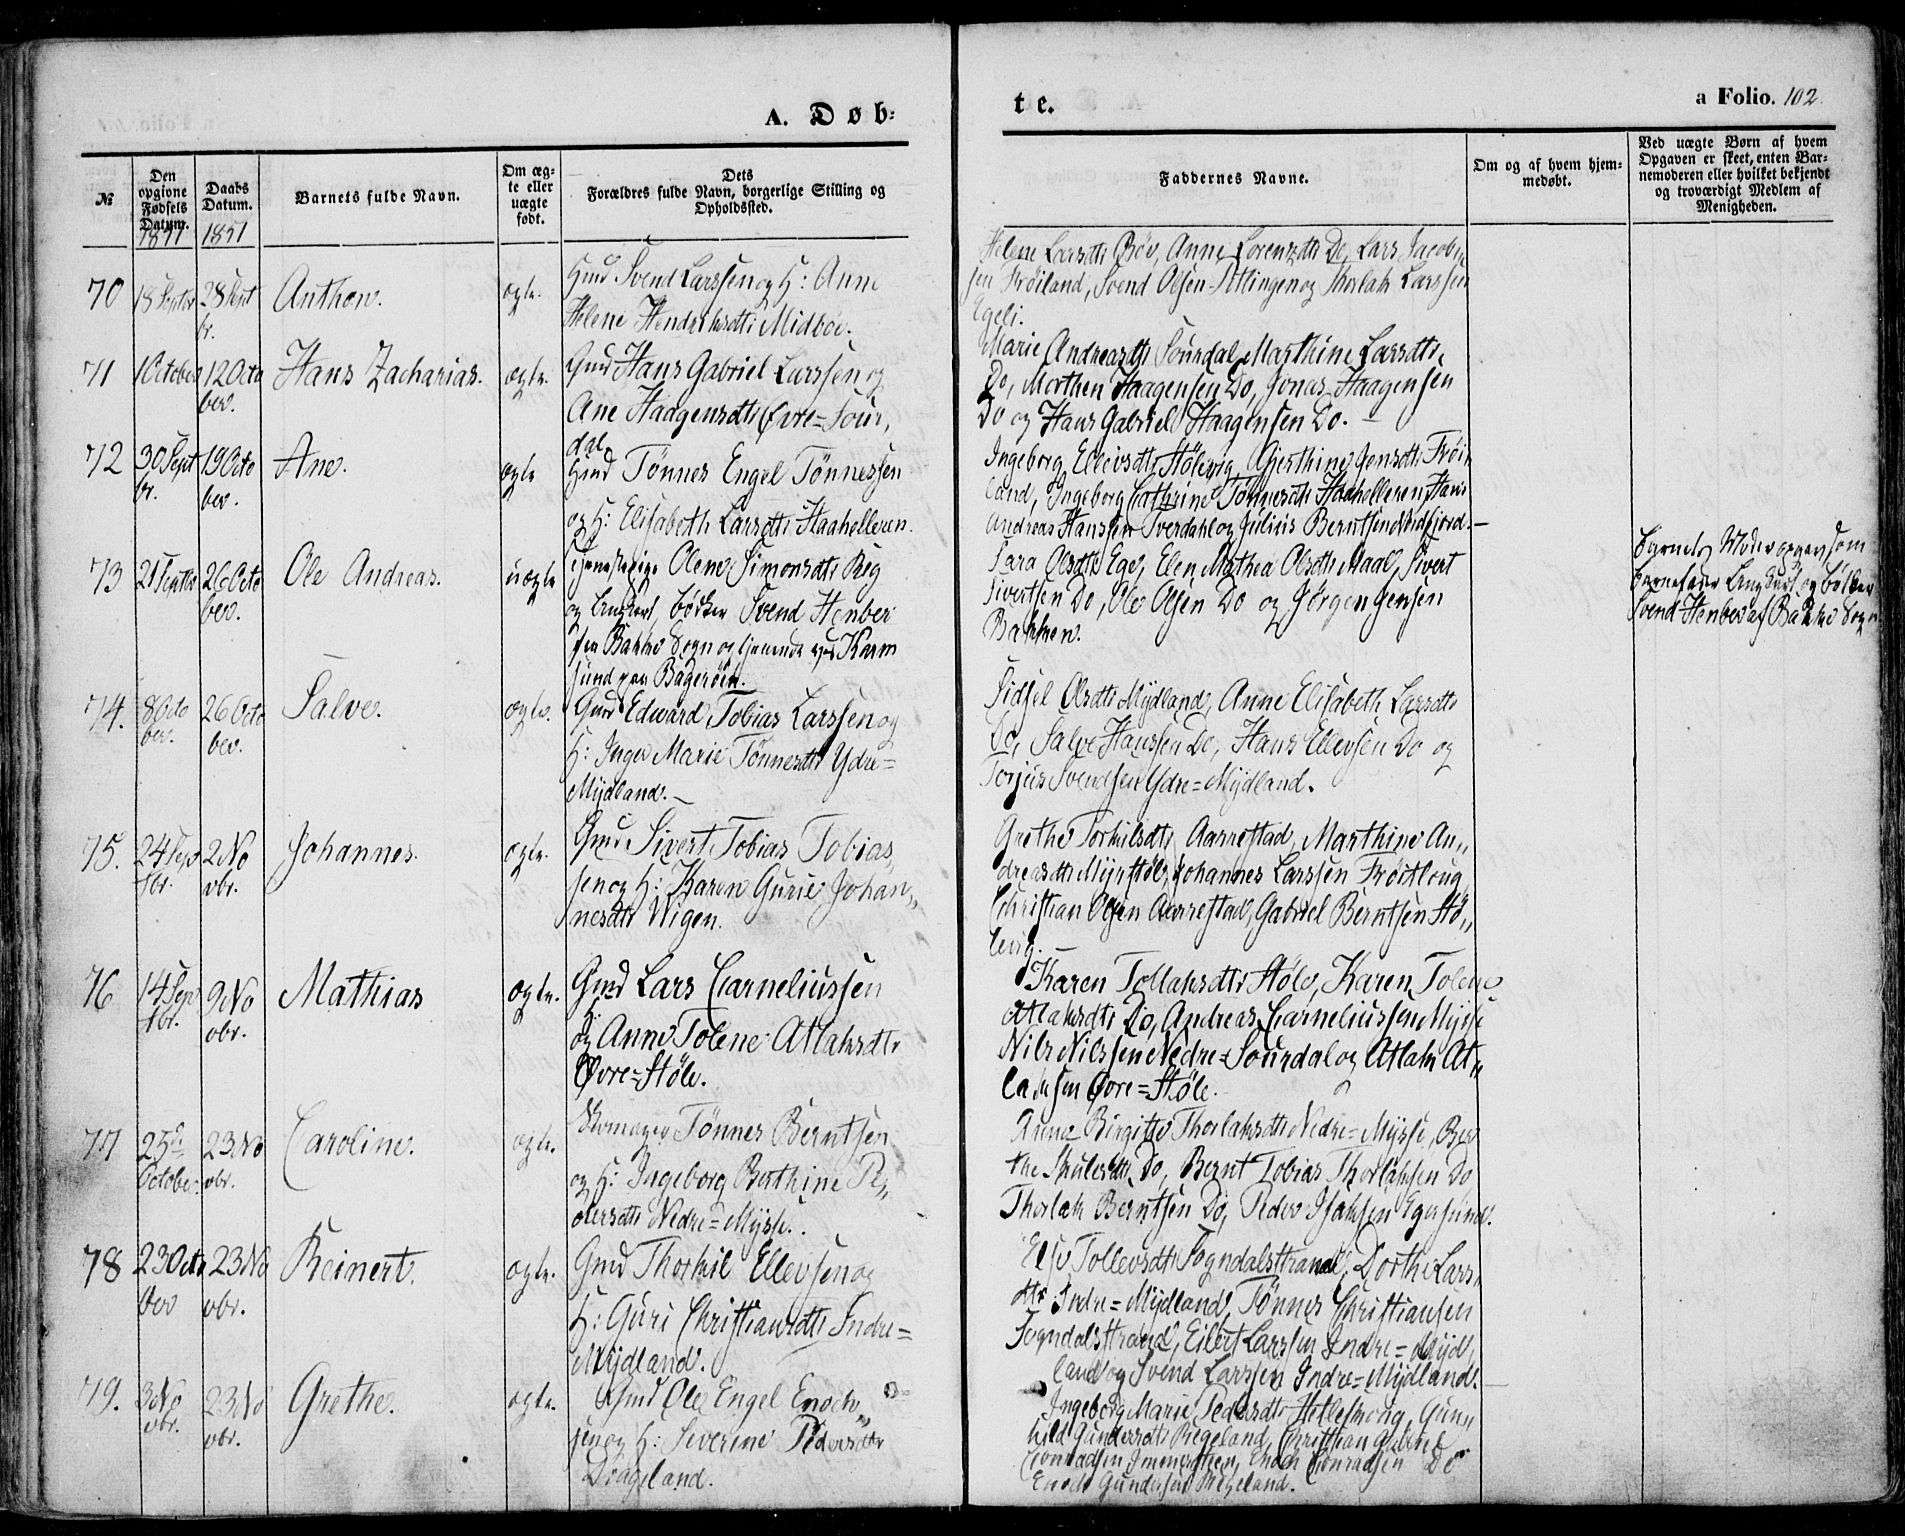 A. Døb=
te.
a Folio. 102.
№
Den opgivne Fødsels Datum.
1851
Daabs Datum.
1851
Barnets fulde Navn.
Om ægte eller uægte født.
Dets
Forældres fulde Navn, borgerlige Stilling og
Opholdssted.
Faddernes Navne.
Om og af hvem hjem-
medøbt.
Ved uægte Børn af hvem
Opgaven er skeet, enten Bar-
nemoderen eller hvilket bekjendt
og troværdigt Medlem af
Menigheden.
70
18 Septbr
28 Sept
br.
Anthon.
ægte.
Gmd Svend Larssen og H: Anne
Helene Hendriksdtr Midbøe.
Helene Larsdtr Bøe, Anne Lorenzdtr Do, Lars Jacob
sen Frøiland, Svend Olsen og Thorlak Larssen
Egeli.
71
1 October
12 Octo
ber.
Hans Zacharias.
ægte.
Gmd Hans Gabriel Larssen og
Ane Haagensdtr Øvre=Sour,
dal
Marie Andreasdtr Sourdal, Marthine Larsdtr
Do, Morthen Haagensen Do, Jonas Haagensen
Do og Hans Gabriel Haagensen Do. —
72
30 Sept
br.
19 Octo
ber.
Ane.
ægte
Gmd Tönnes Engel Tönnessen
og H: Elisabeth Larsdtr Haahelleren.
Ingeborg Ellevsdtr Stölevig, Gjerthine Jensdtr Frøi
land, Ingeborg Cathrine Tönnesdtr Haahelleren, Hans
Andreas Hanssen Tverdahl og Julius Berntsen Nidfjord. —
73
21 Septbr
26 Octo
ber.
Ole Andreas.
uægte
Olene Simonsdtr Reg
og bödker Svend Henber
fra Bakke Sogn og tjenende ved Karm
sund paa Bagerøen.
Sara Olsdtr Ege, Elen Mathea Olsdtr Maal, Sivert
Sivertsen Do, Ole Olsen Do og Jörgen Jensen
Bakken.
Barnets Moder opgav som
Barnefader Ungkarl og bödker
Svend Henber af Bakke Sogn
74.
8 Octo
ber.
26 Octo
ber.
Salve.
ægte.
Gmd Edward Tobias Larssen og
H: Inger Marie Tönnesdtr Ydre=
Mydland. —
Sidsel Olsdtr Mydland, Anne Elisabeth Larsdtr
Do, Salve Hanssen Do, Hans Ellevsen Do og
Torjus Svendsen Ydre=Mydland.
75.
24 Sep
tbr.
2 No
vbr.
Johannes.
ægte.
Gmd Sivert Tobias Tobias,
sen og H: Karen Gurie Johan„
nesdtr Wigen.
Grethe Torkilsdtr Aarrestad, Marthine An„
dreasdtr Myrstöl, Johannes Larssen Frøitlong,
Christian Olsen Aarrestad, Gabriel Berntsen Stö„
levig.
76
14 Sep
tbr.
9 No
vbr.
Mathias
ægte.
Gmd Lars Carneliussen
og H: Anne Tolene Atlaksdtr
Øvre=Støle.
Karen Tollaksdtr Støle, Karen Tolene
Atlaksdtr Do, Andreas Carneliussen Mysse
Nils Nilssen Nedre=Sourdal og Atlak At„
laksen Øvre=Støle.
77
25de
October.
23 No
vbr.
Caroline.
ægte.
Skomager Tönnes Berntsen
og H: Ingeborg Berthine Pe„
dersdtr Nedre=Mysse.
Anna Birgitte Thorlaksdtr Nedre=Mysse, Ber
the Skulesdtr Do, Bernt Tobias Thorlaksen Do
Thorlak Berntsen Do, Peder Isaksen Egersund.
78
23 Octo
ber
23 No
vbr.
Reinert.
ægte.
Gmd Thorkil Ellevsen og
H: Guri Christiansdtr Indre=
Mydland.
Else Tollevsdtr Sogndalsstrand, Dorthe Lars
dtr Indre=Mydland, Tönnes Christiansen
Sogndalsstrand, Eilert Larssen Indre=Myd,
land og Svend Larssen Indre=Mydland. —
79.
3 No
vbr.
23 No
vbr.
Grethe.
ægte.
Gmd Ole Engel Enoch„
sen og H: Severine Pedersdtr
Drageland.
Ingeborg Marie Pedersdtr Hetleskoug, Gun„
hild Gundersdtr Regeland, Christian Gabriel
Conradsen, Enoch Conradsen Do
Enoch Gundersen Regeland.